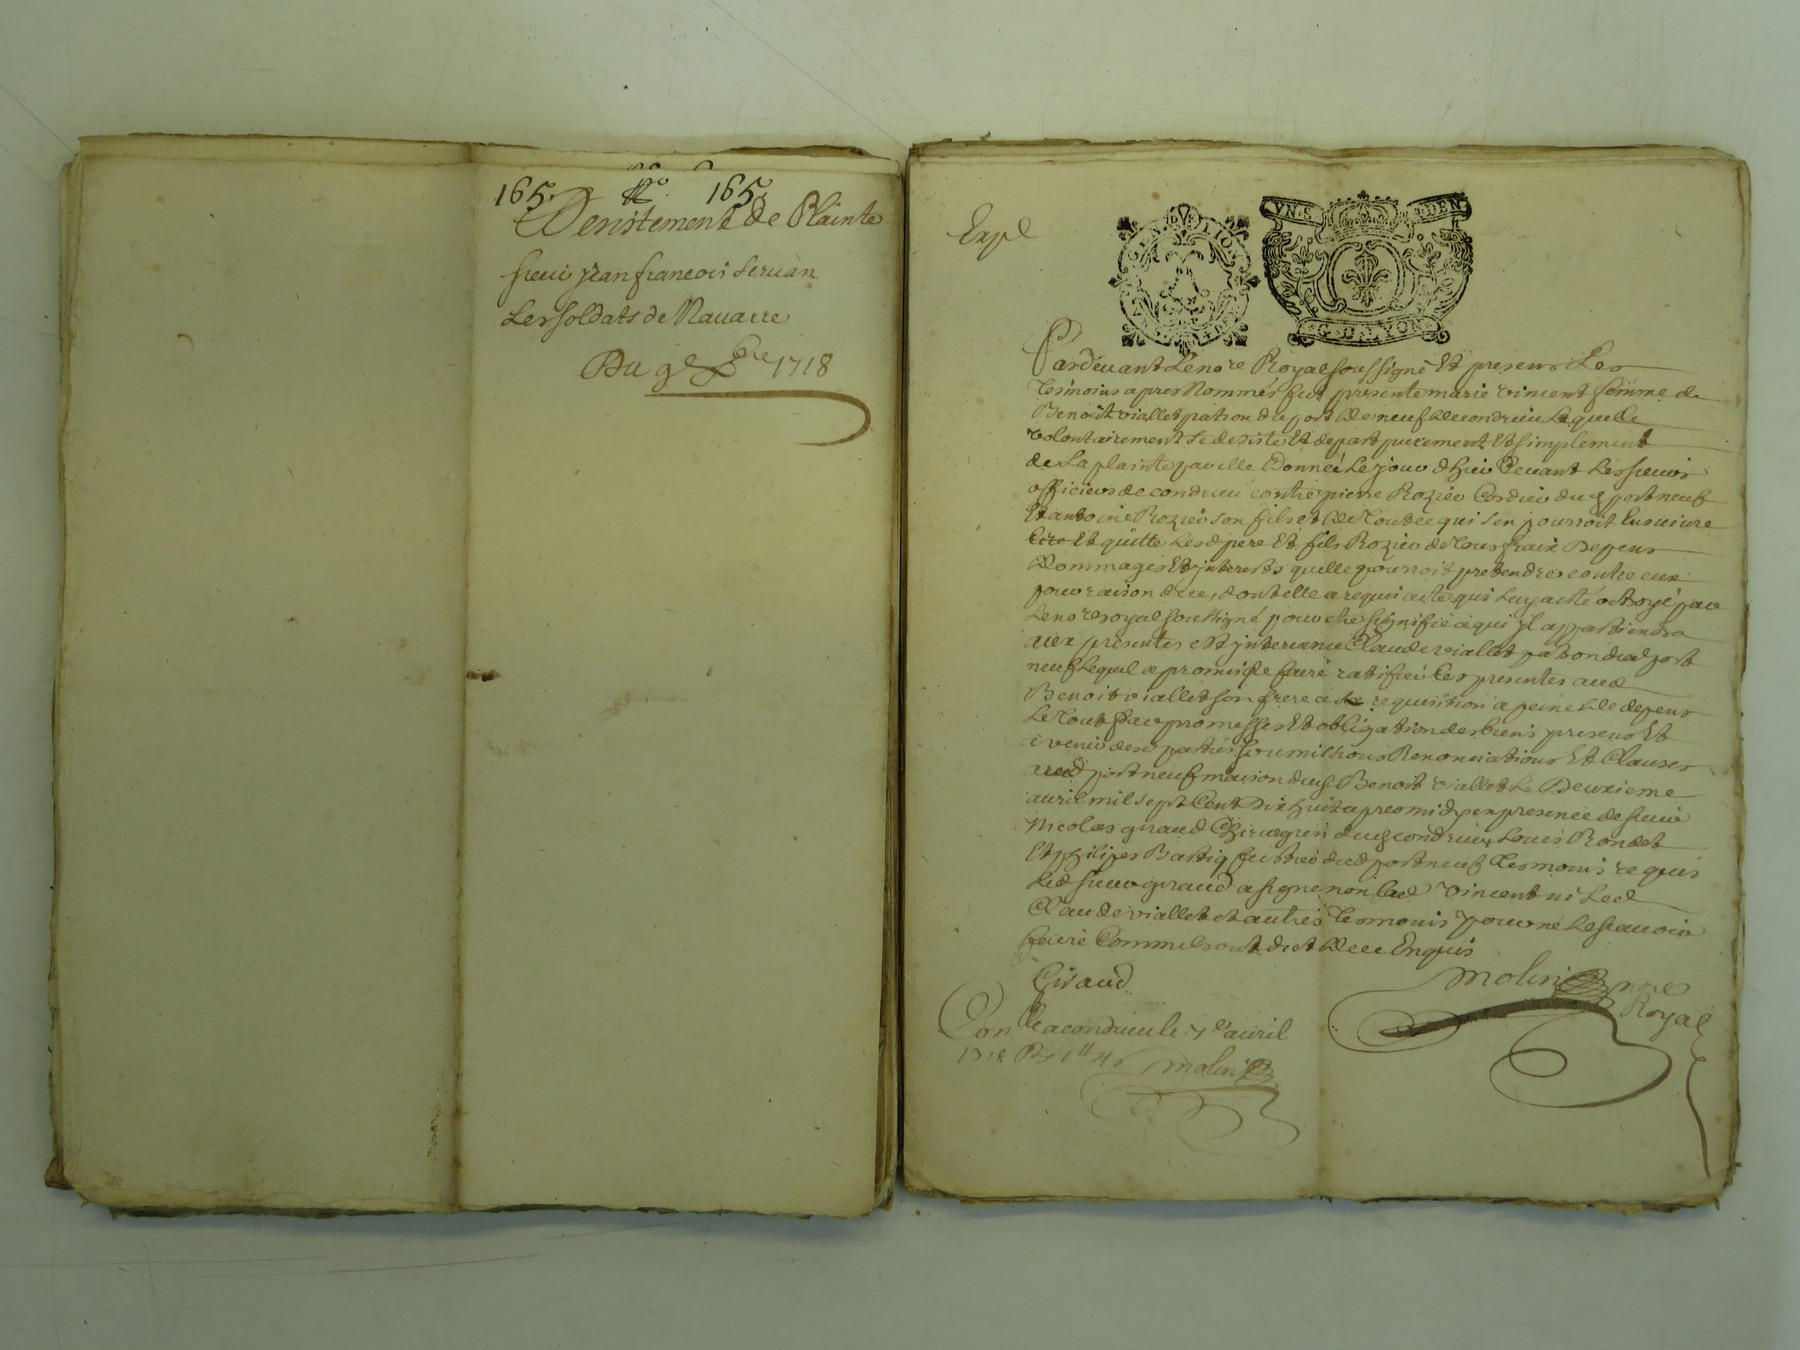 165. No. 165
Desistement de Plainte
sieur jean francois servan
Les soldats de Navarre
Du 9e Xbre 1718
Expe
GENERATION
LYON
Pardevant Le nore Royal soussigné Et presens Les
tesmoins apres Nommés fut presente marie vincent femme de
Benoit viallet patron du port de neuf de condrieu Laquelle
volontairement se desiste Et depart purement Et simplement
de La plainte par elle Donnée Le jour dhier devant Les sieurs
officiers de condrieu contre pierre Rozier Cordier dud port neuf
Et antoine Rozier son fils et de Tout ce qui sen pourroit Ensuivre
Et quitte Lesd pere Et fils Rozier de tous fraix Depens
Dommages Et jnterests quelle pourroit pretendre contre eux
pour raison dice, dont elle a requis acte qui Luy a esté octroyé par
Le nore royal soussigné pour estre signifié a qui jl appartiendra
aux presentes est jntervenu Claude viallet patron dud port
neuf Lequel a promis de faire ratifier Ces presentes aud
Benoit viallet son frere a requisition a peine de depens
Le Tout par promesses Et obligation des biens presens Et
a venir desd parties soumissions Renonciations Et Clauses
aud port neuf maison dud Benoit viallet Le Deuxieme
avril mil sept Cent Dix huit apres midy en presence de sieur
Nicolas giraud Chirurgien dud condrieu, Louis Rondet
Et philipes Bastiq dud port neuf tesmoins requis
Led sieur giraud a signé non Lad vincent ni Led
Claude viallet et autres tesmoins pour ne Le scavoir
faire Comme ils ont dict de ce Enquis
Giraud
Molin nore
Royal
Conlle a condrieu le 7e avril
1718 Rx 1 ll 4s
Molin